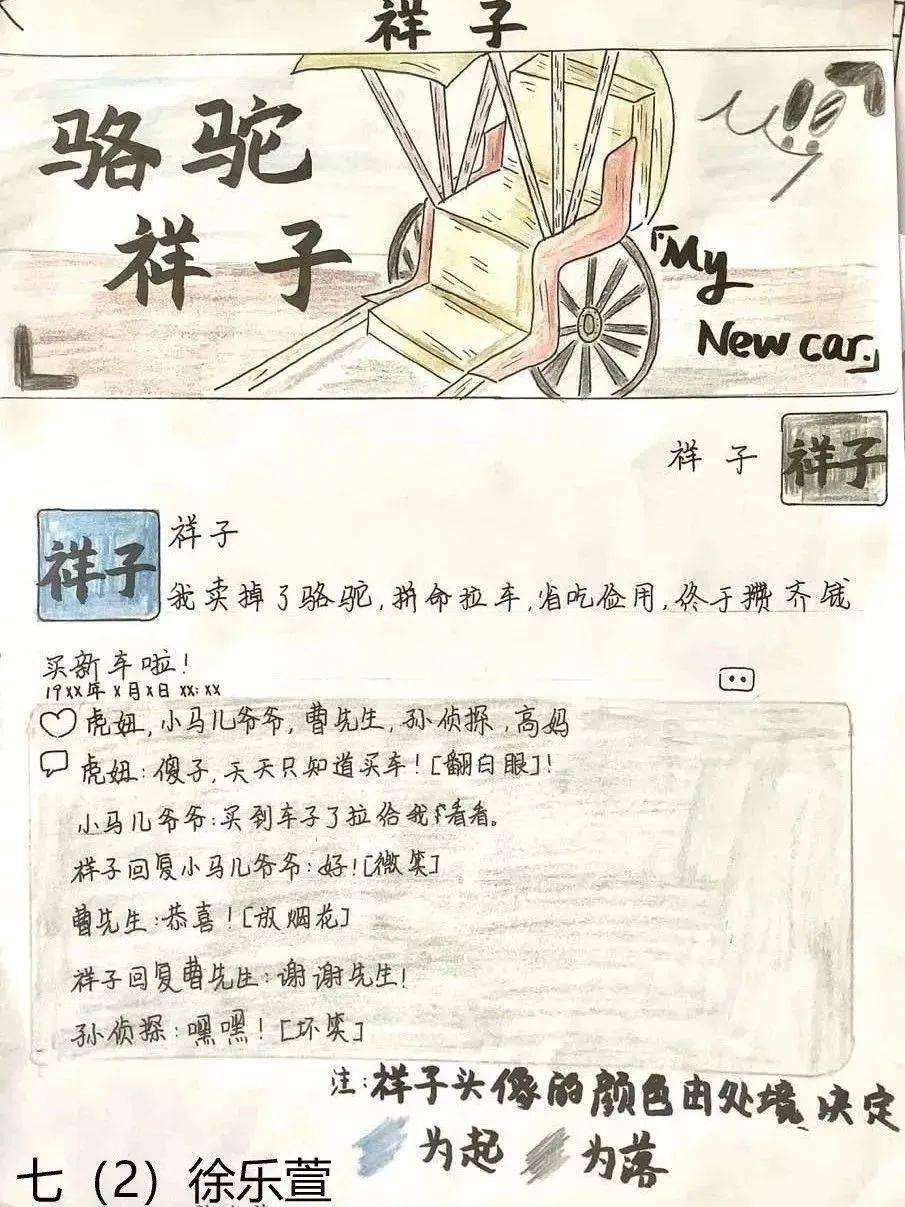 祥子
骆驼
祥子
「My
New car.」
祥子
祥子
祥子
祥子
我卖掉了骆驼,拼命拉车,省吃俭用,终于攒齐钱
买新车啦!
19XX年X月X日 XX:XX
虎妞,小马儿爷爷,曹先生,孙侦探,高妈
虎妞:傻子,天天只知道买车![翻白眼]!
小马儿爷爷:买到车子了拉给我看看。
祥子回复小马儿爷爷:好![微笑]
曹先生:恭喜![放烟花]
祥子回复曹先生:谢谢先生!
孙侦探:嘿嘿![坏笑]
注:祥子头像的颜色由处境决定
为起 为落
七(2)徐乐萱